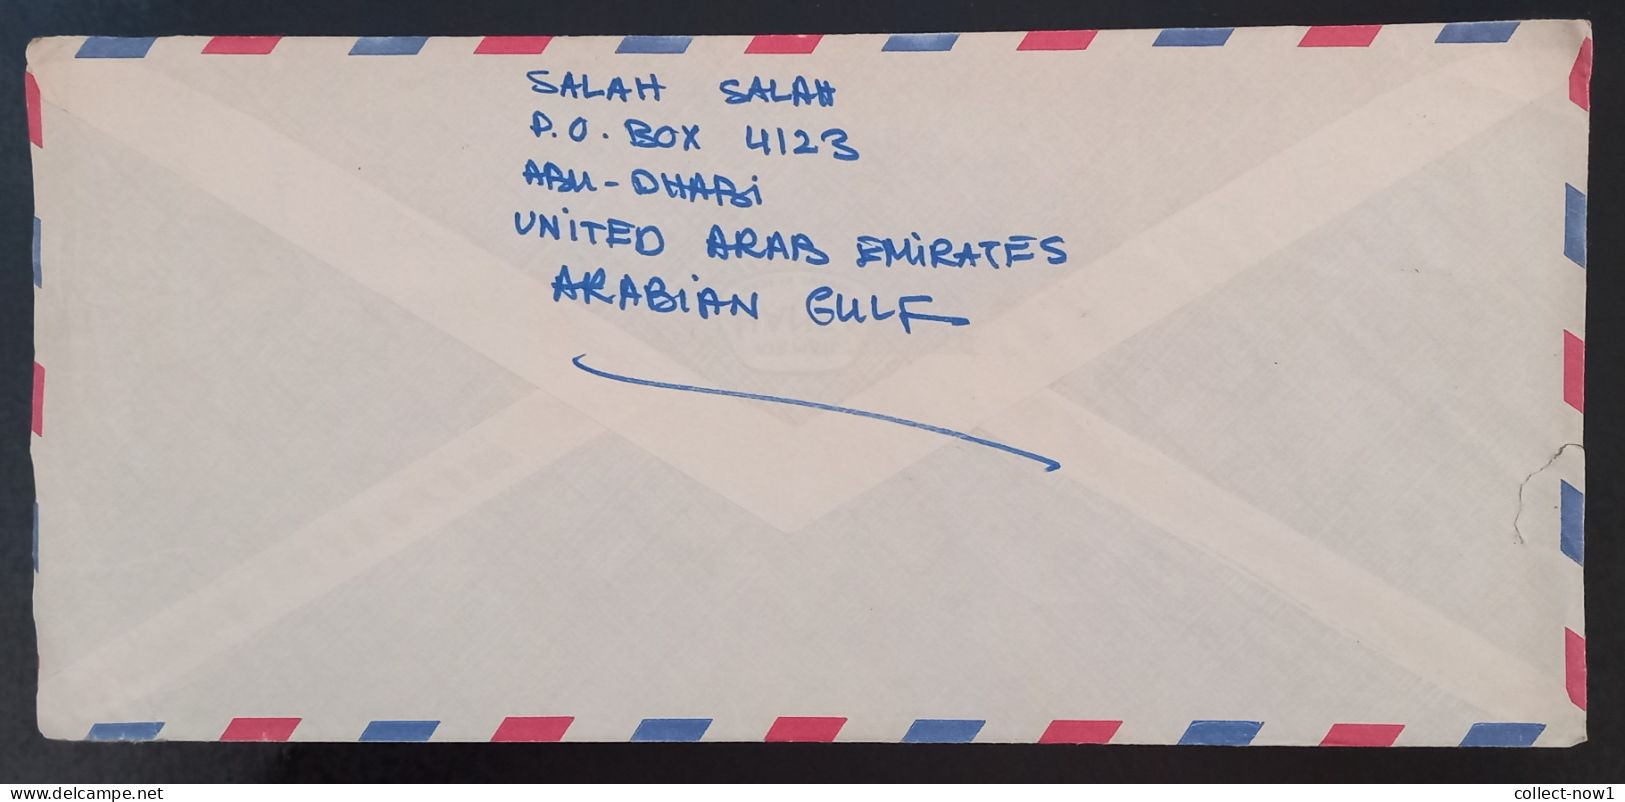 SALAH SALAH
P.O. BOX 4123
ABU-DHABi
UNiTED ARAB EMiRATES
ARABiAN GULF
delcampe.net
collect-now1